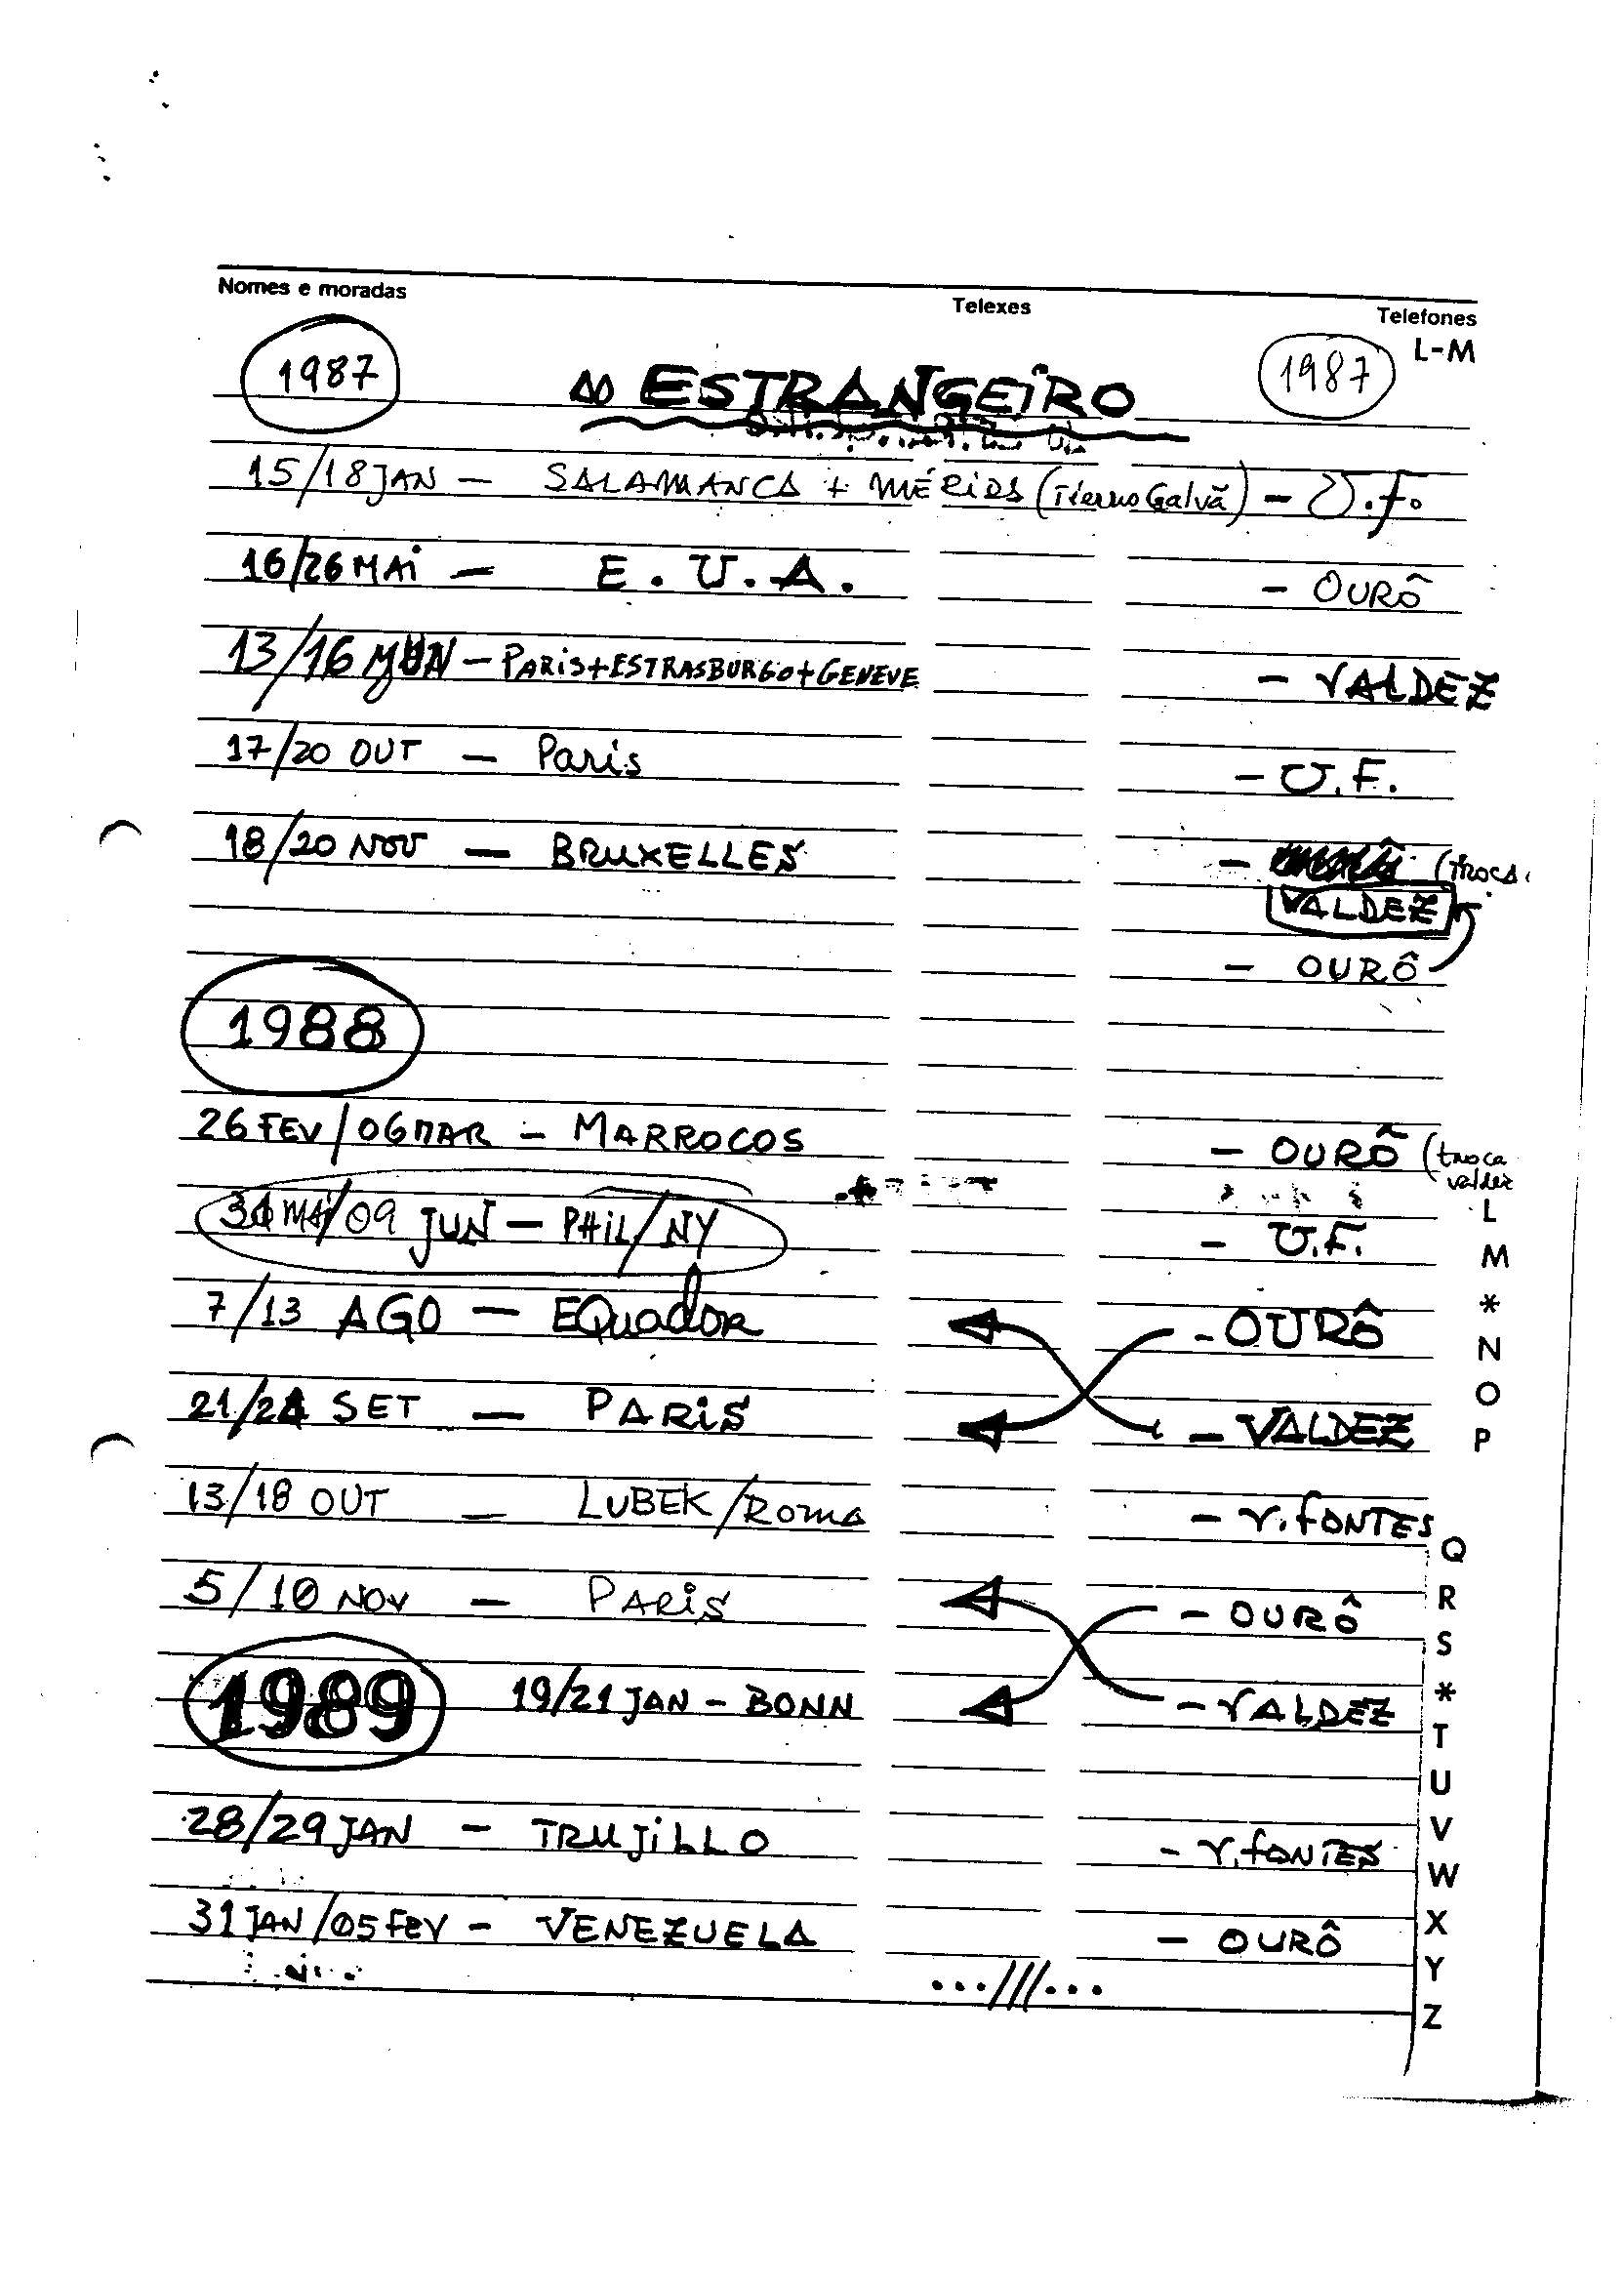 Nomes e moradas Telexes Telefones
L-M
1987 ao ESTRANGEIRO 1987
15/18 JAN - SALAMANCA + MÉRIDA (Tierno Galvã) - V.F.
16/26 MAI - E.U.A. - OURÔ
13/16 JUN - PARIS+ESTRASBURGO+GENEVE - VALDEZ
17/20 OUT - Paris - V.F.
18/20 NOV - BRUXELLES - (troca
VALDEZ
- OURÔ
1988
26 FEV/06 MAR - MARROCOS - OURÔ (troca
valdez
L
MAI/09 JUN - PHIL/NY - V.F.
M
7/13 AGO - EQuadoR - OURÔ
*
N
O
21/24 SET - PARIS - VALDEZ
P
13/18 OUT - LUBEK/Roma - V. FONTES
Q
5/10 NOV - PARIS - OURÔ
R
S
1989 19/21 JAN - BONN - VALDEZ
*
T
U
28/29 JAN - TRUJILLO - V. FONTES
V
W
31 JAN/05 FEV - VENEZUELA - OURÔ
X
Y
...///...
Z